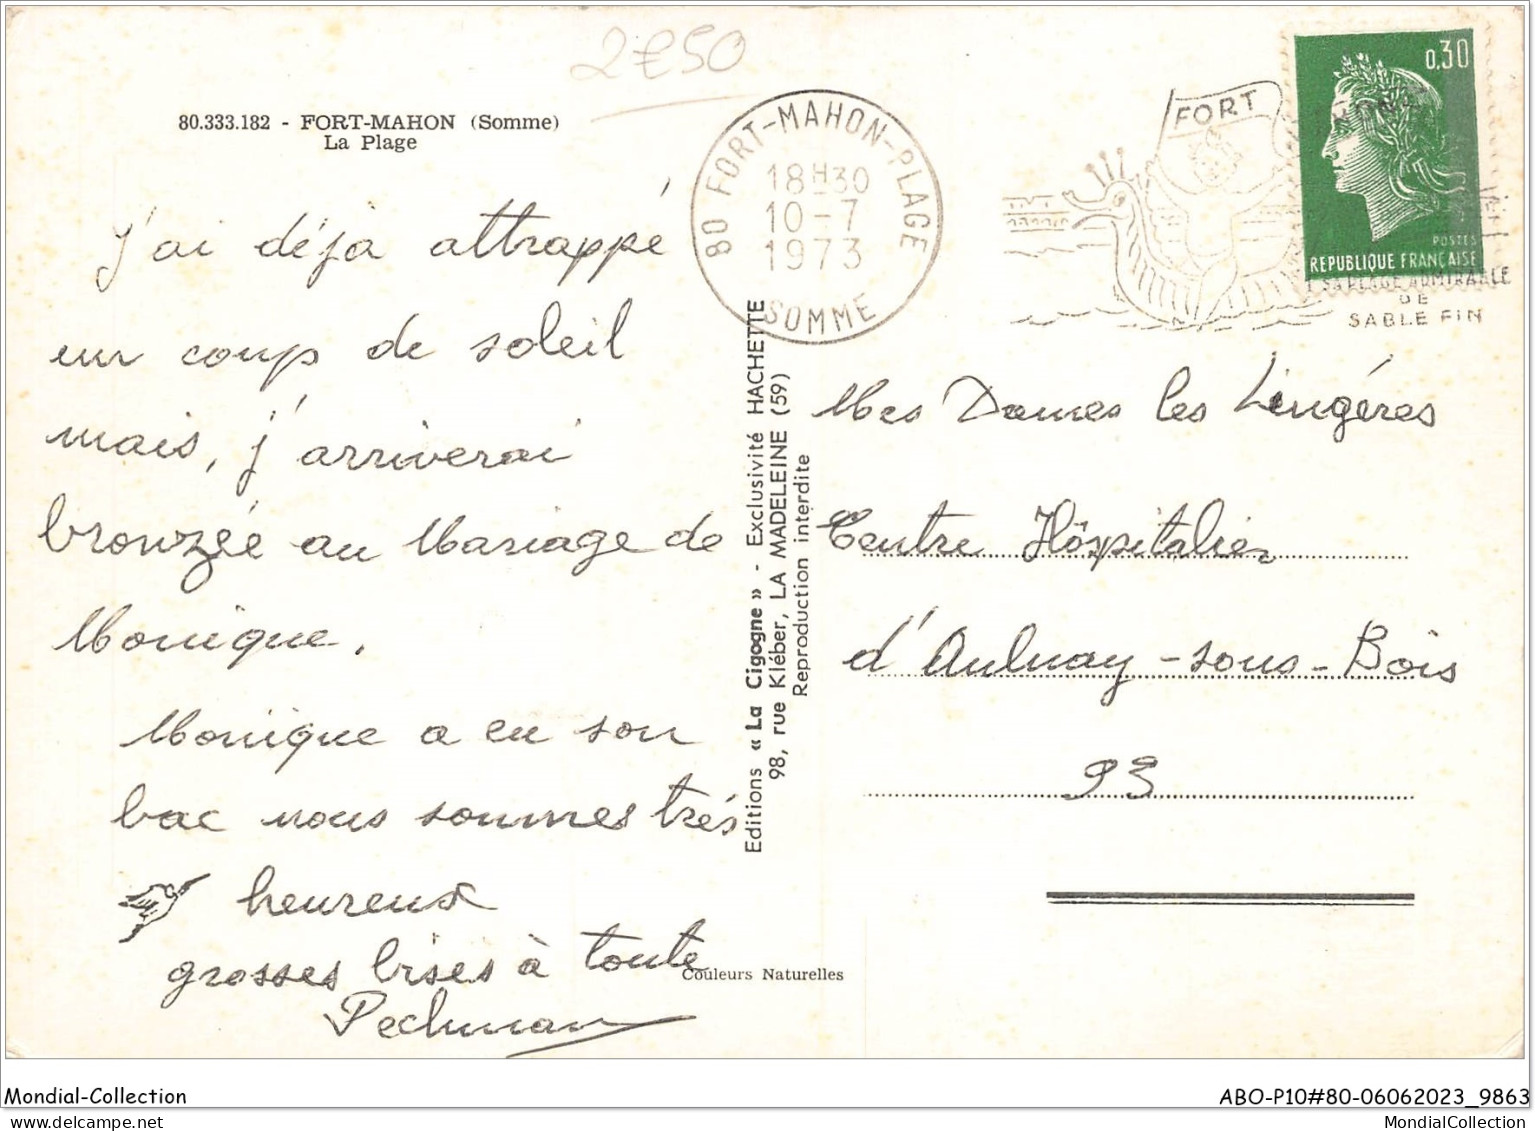 2€50
80.333.182 - FORT-MAHON (Somme)
La Plage
80 FORT-MAHON-PLAGE
18H30
10-7
1973
SOMME
FORT
0,30
POSTES
REPUBLIQUE FRANÇAISE
SA PLAGE ADMIRABLE
DE
SABLE FIN
j'ai déjà attrappé
un coup de soleil
mais, j'arriverai
bronzée au Mariage de
Monique.
Monique a eu son
bac nous sommes trés
heureux
grosses bises à toute
Pechman
Editions « La Cigogne » - Exclusivité HACHETTE
98, rue Kléber, LA MADELEINE (59)
Reproduction interdite
Mes Dames les Lingéres
Centre Hôspitalier
d'Aulnay-sous-Bois
93
Couleurs Naturelles
Mondial-Collection
ABO-P10#80-06062023_9863
delcampe.net
MondialCollection